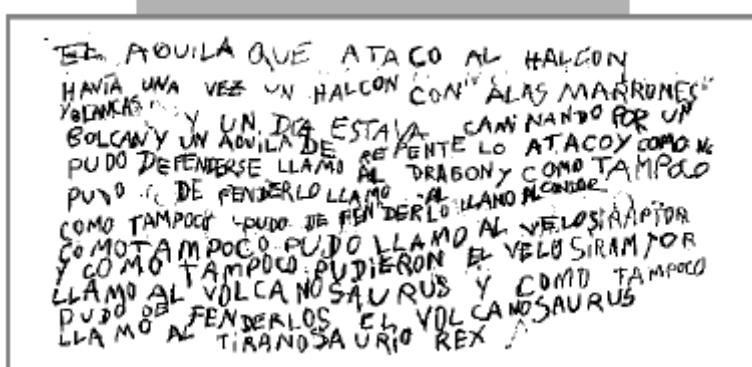 EL AQUILA QUE ATACO AL HALCON
HAVIA UNA VEZ UN HALCON CON ALAS MARRONES
Y BLANCAS
Y UN DIA ESTAVA CAMINANDO POR UN
BOLCAN Y UN AQUILA DE REPENTE LO ATACO Y COMO NO
PUDO DEFENDERSE LLAMO AL DRAGON Y COMO TAMPOCO
PUDO DEFENDERLO LLAMO AL LLAMO AL CONDOR
COMO TAMPOCO PUDO DEFENDERLO LLAMO AL VELOSIRAPTOR
COMO TAMPOCO PUDO LLAMO AL VELOSIRAPTOR
Y COMO TAMPOCO PUDIERON EL VELOSIRAMTOR
LLAMO AL VOLCANOSAURUS Y COMO TAMPOCO
PUDO DEFENDERLOS EL VOLCANOSAURUS
LLAMO AL TIRANOSAURIO REX